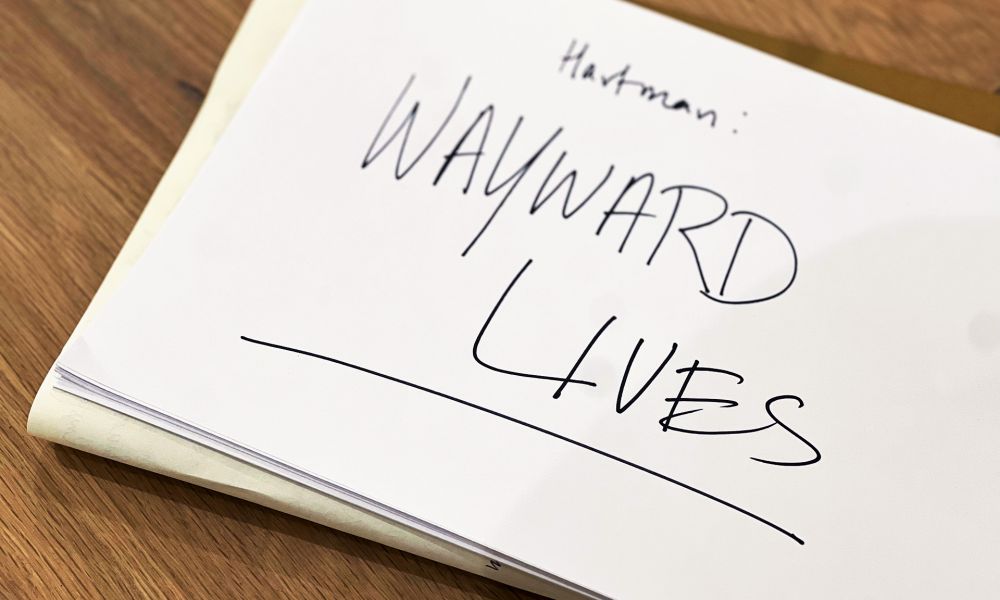 Hartman:
WAYWARD
LIVES